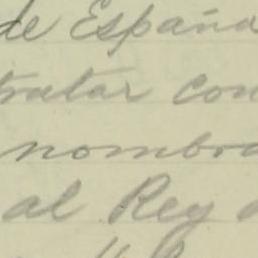 de España
tratar con
nombra
al Rey